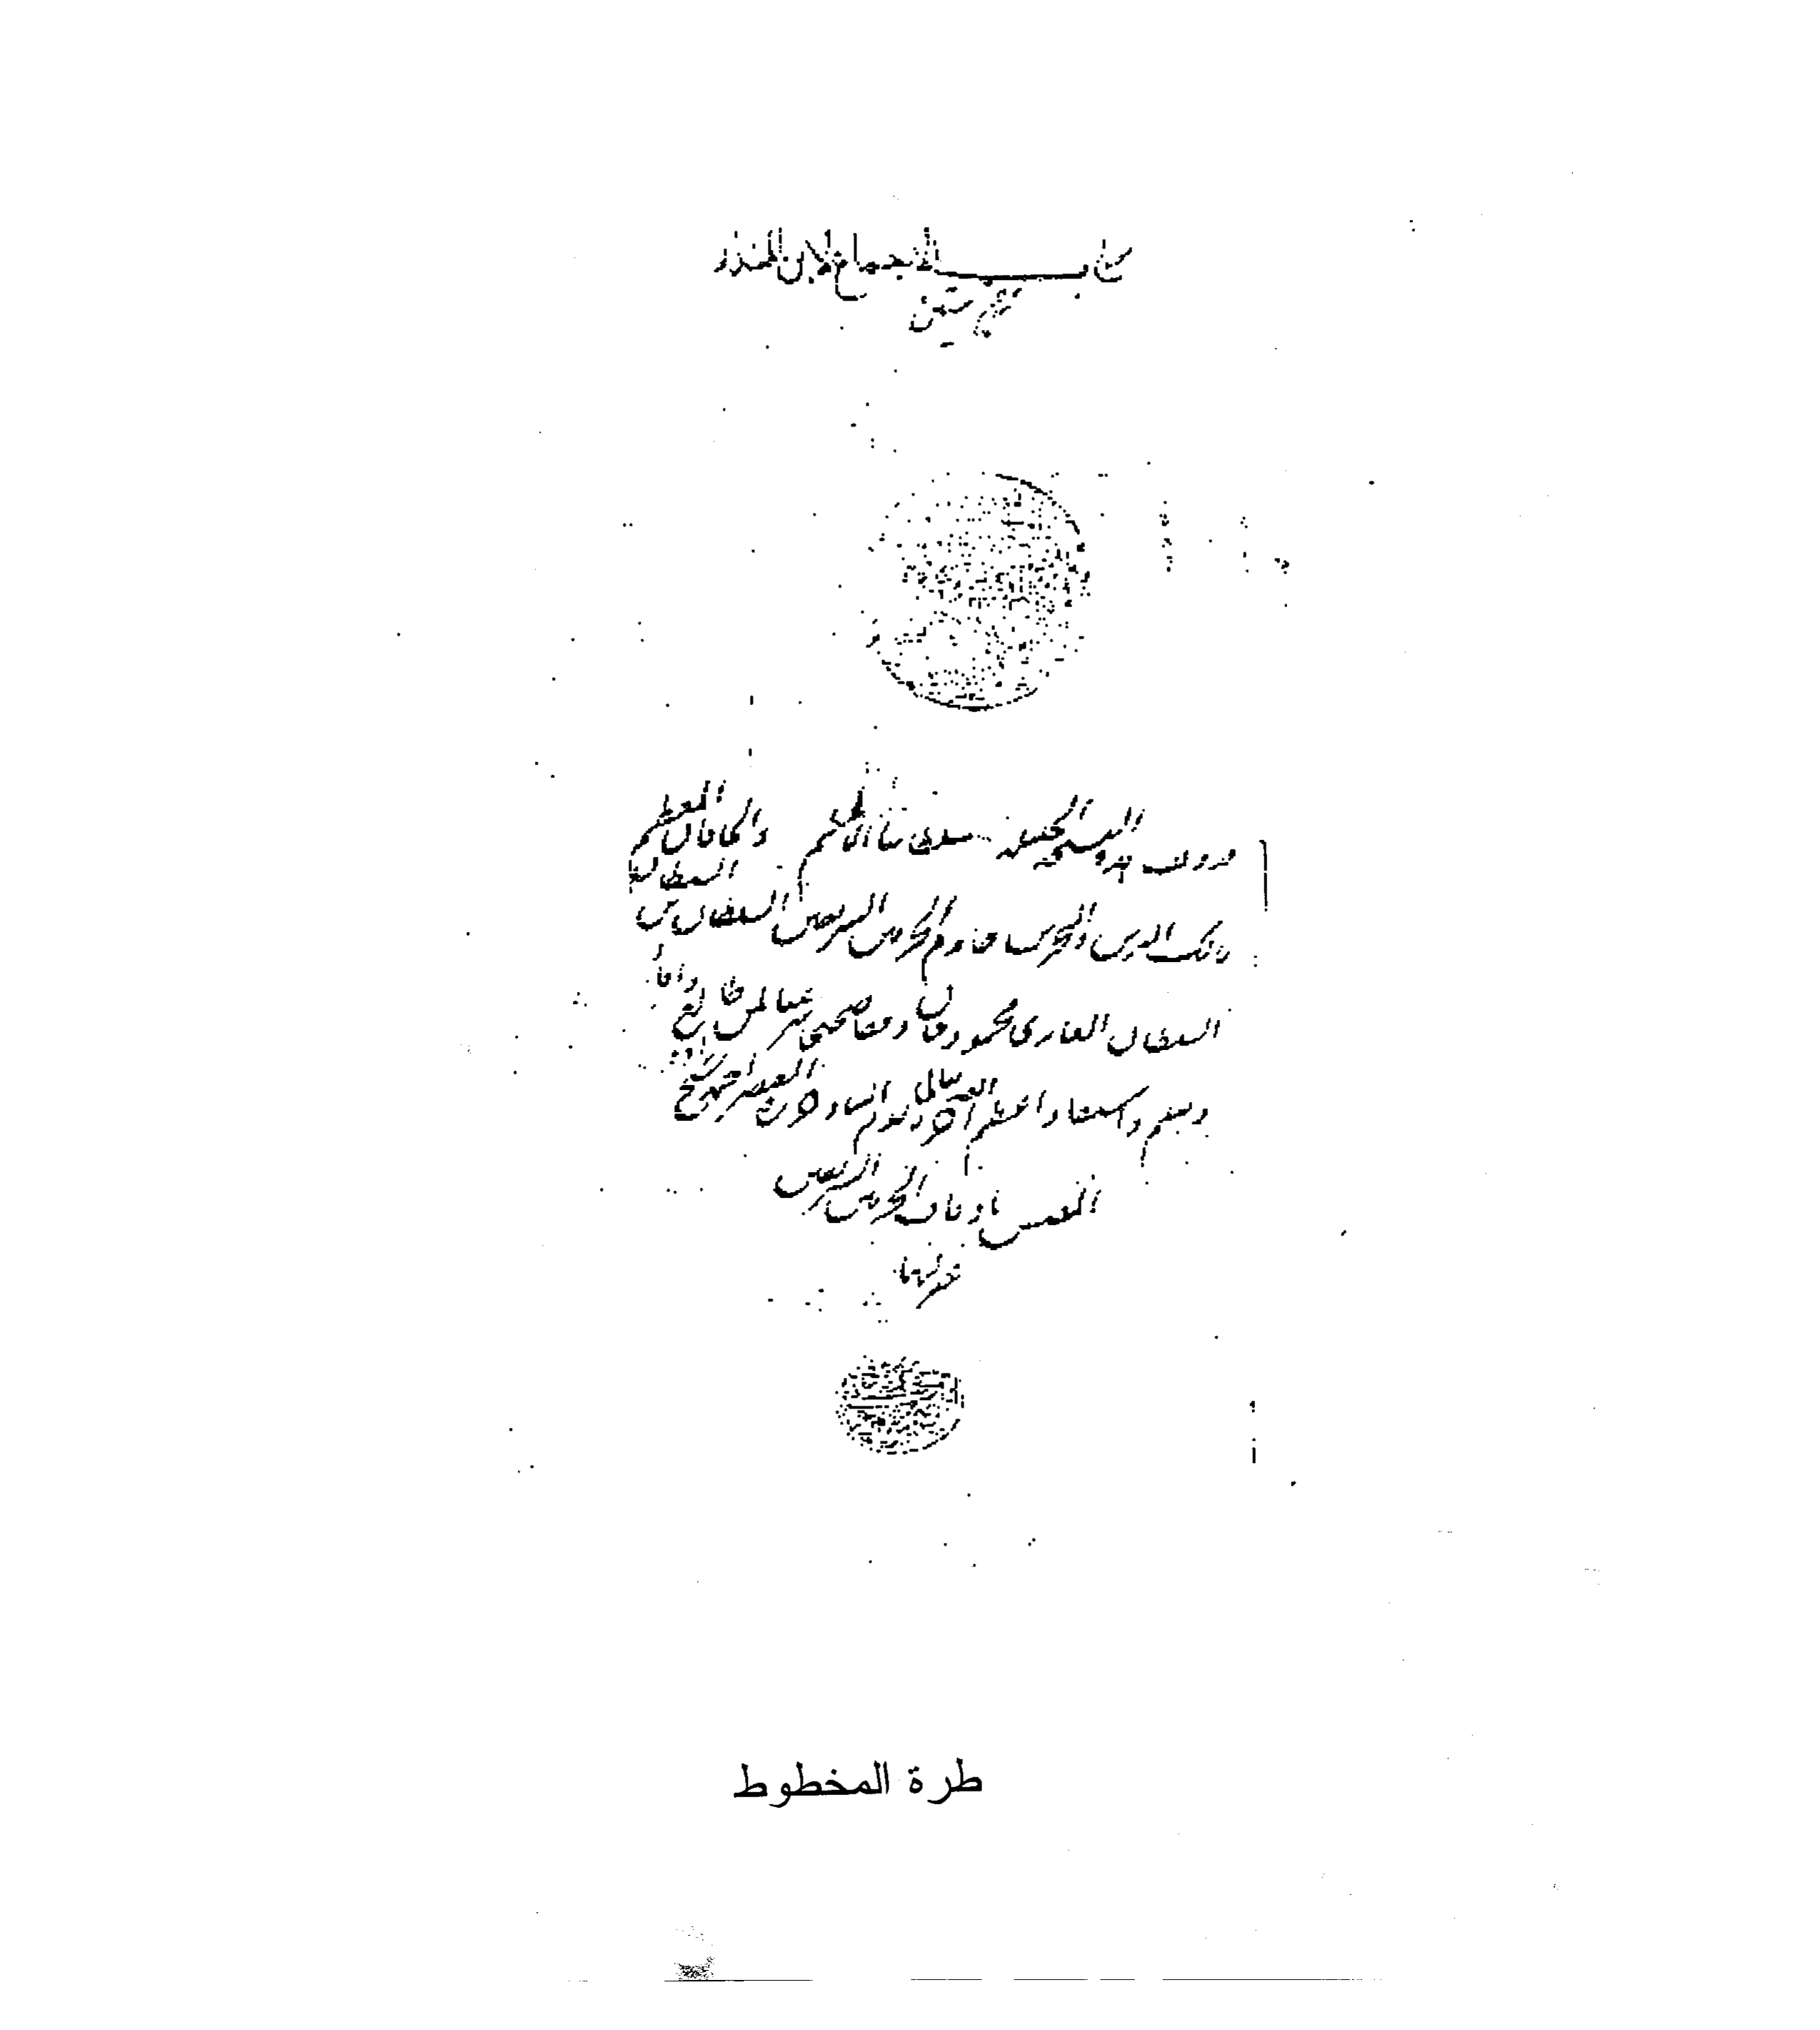 كتاب الاجماع لابن المنذر
قد وقف هذه النسخة الجليلة سلطاننا الاعظم والخاقان المعظم
مالك البرين والبحرين خادم الحرمين الشريفين السلطان بن السلطان
السلطان الغازى محمود خان وقفا صحيحا شرعيا لمن طالع وافاد
وتعلم واستفاد اعظم الله تعالى اجره يوم التناد حرره الفقير احمد شيخ زاده
المفتش باوقاف الحرمين الشريفين
غفر لهما
طرة المخطوط